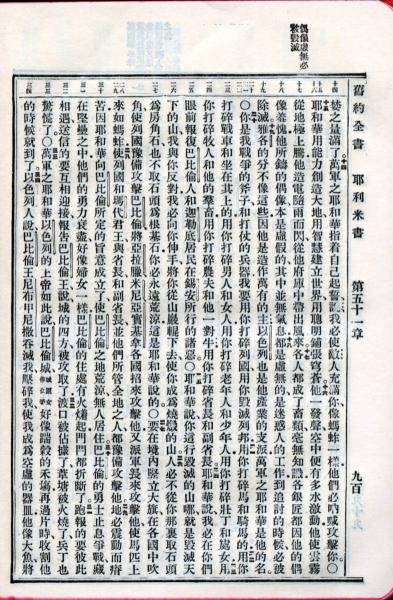 偶像虛無必
致毀滅
舊約全書 耶利米書 第五十一章 九百
之量滿了萬軍之耶和華指着自己起誓說我必使敵人充滿你像螞蚱一樣他們必吶喊攻擊你〇
耶和華用能力創造大地用智慧建立世界用聰明鋪張穹蒼他一發聲空中便有多水激動他使雲霧
從地極上騰他造電隨雨而閃從他府庫中帶出風來各人都成了畜類毫無知識各銀匠都因他的偶
像羞愧他所鑄的偶像本是虛假的其中並無氣息都是虛無的是迷惑人的工作到追討的時候必被
除滅雅各的分不像這些因他是造作萬有的主以色列也是他產業的支派萬軍之耶和華是他的名
〇你是我戰爭的斧子和打仗的兵器我要用你打碎列國用你毀滅列邦用你打碎馬和騎馬的用你
打碎戰車和坐在其上的用你打碎男人和女人用你打碎老年人和少年人用你打碎壯丁和處女用
你打碎牧人和他的羣畜用你打碎農夫和他一對牛用你打碎省長和副省長耶和華說我必在你們
眼前報復巴比倫人和迦勒底居民在錫安所行的諸惡〇耶和華說你這行毀滅的山哪就是毀滅天
下的山我與你反對我必向你伸手將你從山巖輥下去使你成爲燒燬的山人必不從你那裏取石頭
爲房角石也不取石頭爲根基石你必永遠荒涼這是耶和華說的〇要在境內豎立大旗在各國中吹
角使列國豫備攻擊巴比倫將亞拉臘米尼亞實基拿各國招來攻擊他又派軍長來攻擊他使馬匹上
來如螞蚱使列國和瑪代君王與省長和副省長並他們所管全地之人都豫備攻擊他地必震動而瘠
苦因耶和華向巴比倫所定的旨意成立了使巴比倫之地荒涼無人居住巴比倫的勇士止息爭戰藏
在堅壘之中他們的勇力衰盡好像婦女一樣巴比倫的住處有火燒起門閂都折斷了跑報的要彼此
相遇送信的要互相迎接報告巴比倫王說城的四方被攻取了渡口被佔據了葦塘被火燒了兵丁也
驚慌了〇萬軍之耶和華以色列的上帝如此說巴比倫城好像踹穀的禾場再過片時收割他
的時候就到了以色列人說巴比倫王尼布甲尼撒吞滅我壓碎我使我成爲空虛的器皿他像大魚將